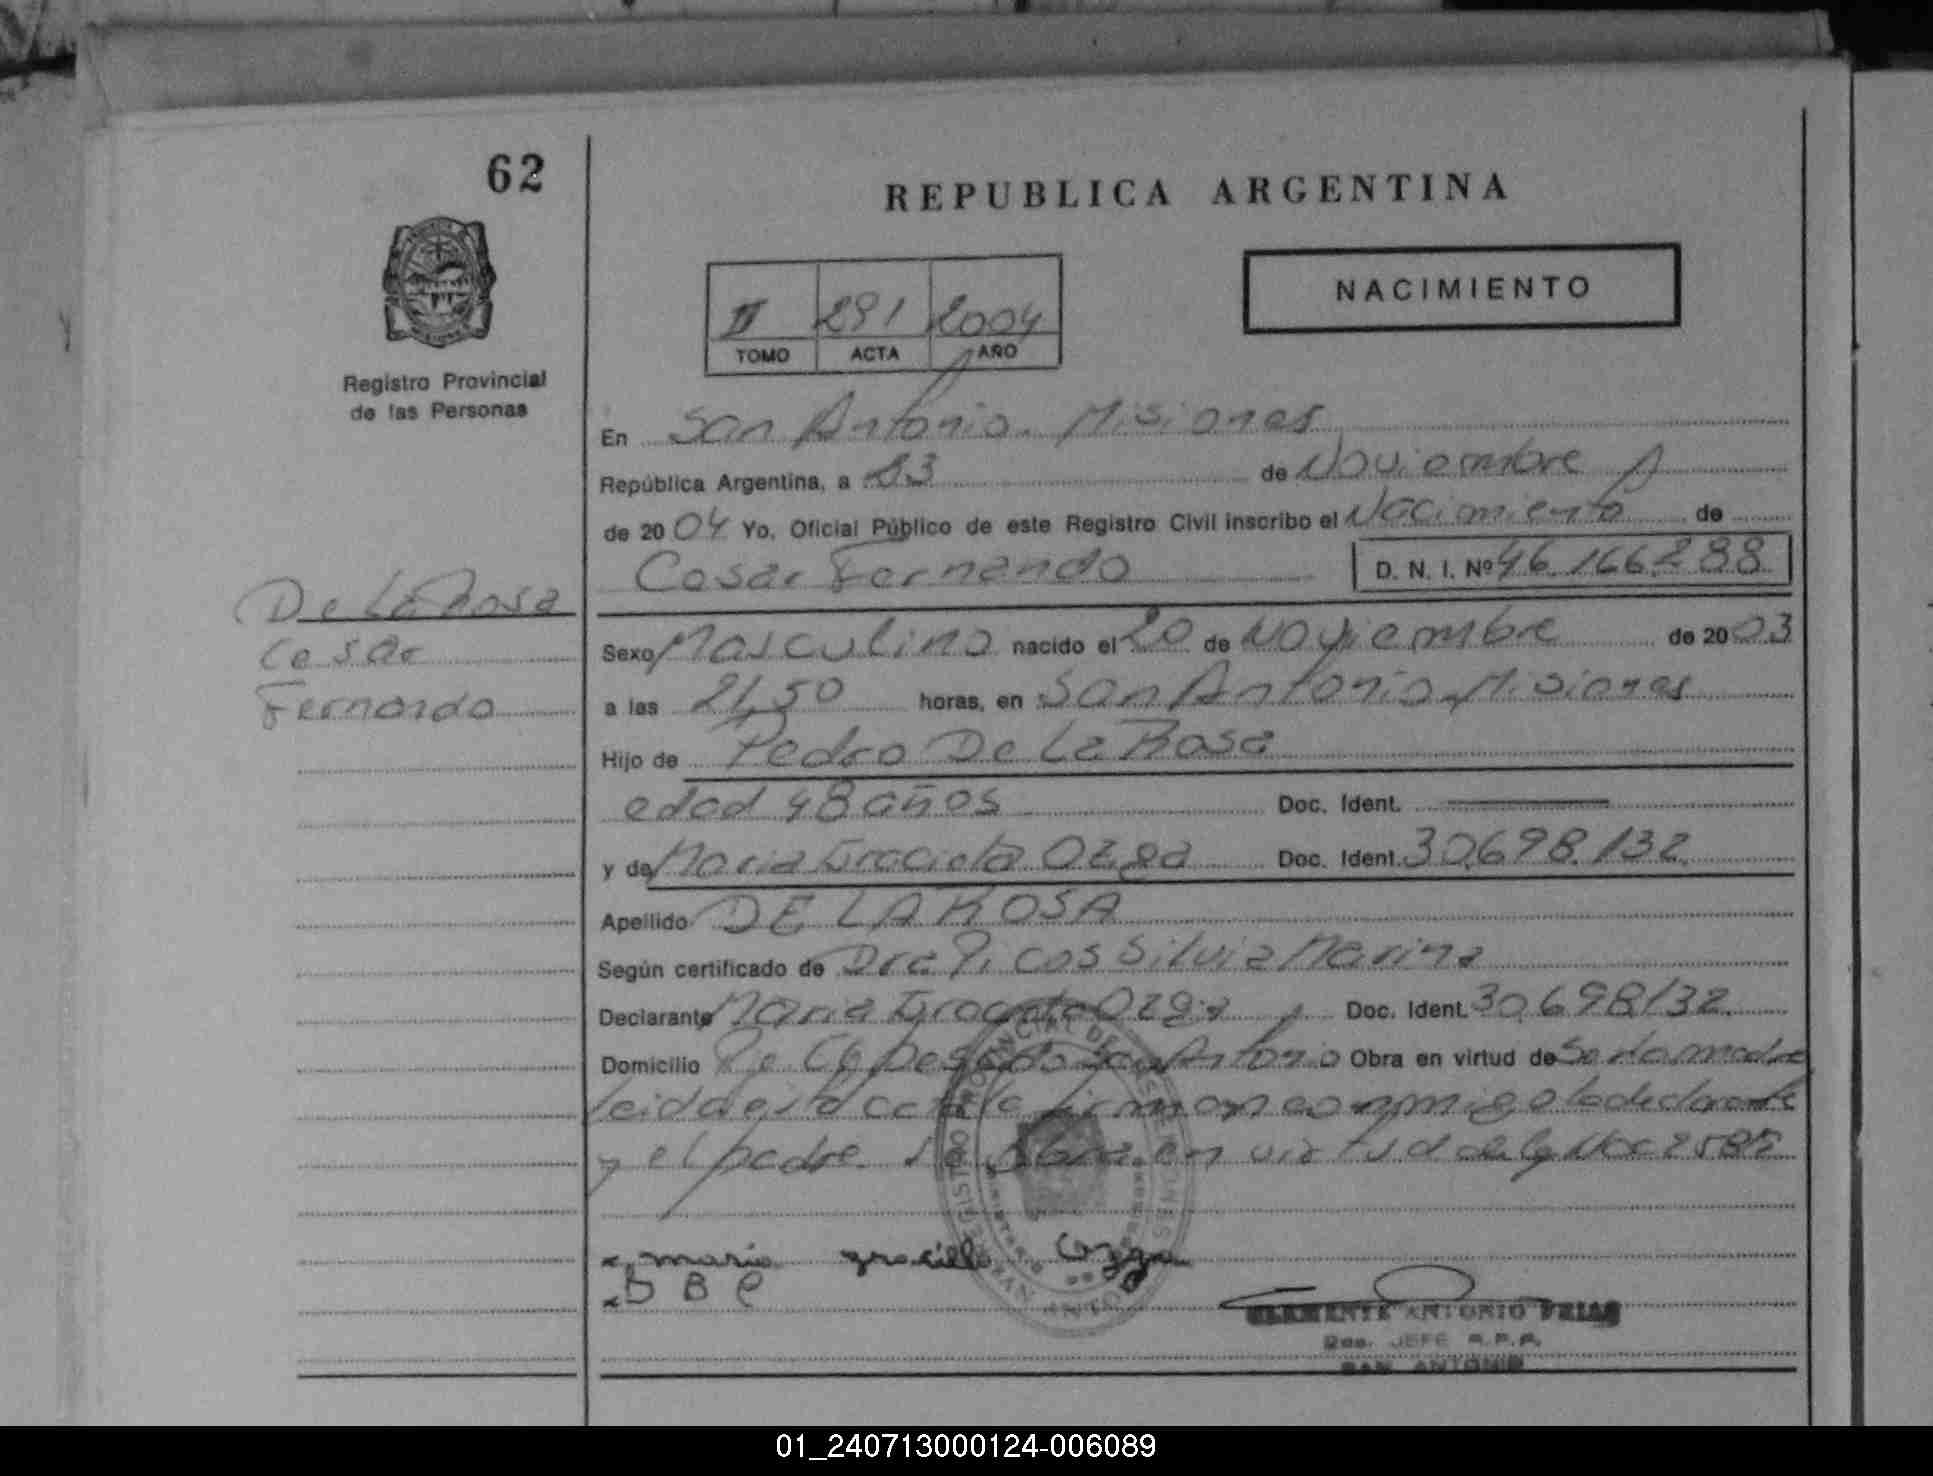 62
REPUBLICA ARGENTINA
NACIMIENTO
II 291 2004
TOMO ACTA AÑO
Registro Provincial
de las Personas
En San Antonio. Misiones
República Argentina, a 23 de Noviembre
de 2004 Yo, Oficial Público de este Registro Civil inscribo el Nacimiento de
Cesar Fernando D. N. I. Nº 46.166.288
De La Rosa
Cesar
Fernando
Sexo Masculino nacido el 20 de Noviembre de 2003
a las 21,50 horas, en San Antonio Misiones
Hijo de Pedro De La Rosa
edad 48 años Doc. Ident.
y de Maria Graciela Ozga Doc. Ident. 30.698.132
Apellido DE LA ROSA
Según certificado de Dra Silvia Marina
Declarante Maria Graciela Ozga Doc. Ident. 30.698.132
Domicilio San Antonio Obra en virtud de Ser la madre
leida el acta la firman conmigo la declarante
y el padre. Obra en virtud de la
maria graciela Ozga
D B C
CLEMENTE ANTONIO FRIAS
JEFE R.P.P.
SAN ANTONIO
01_240713000124-006089